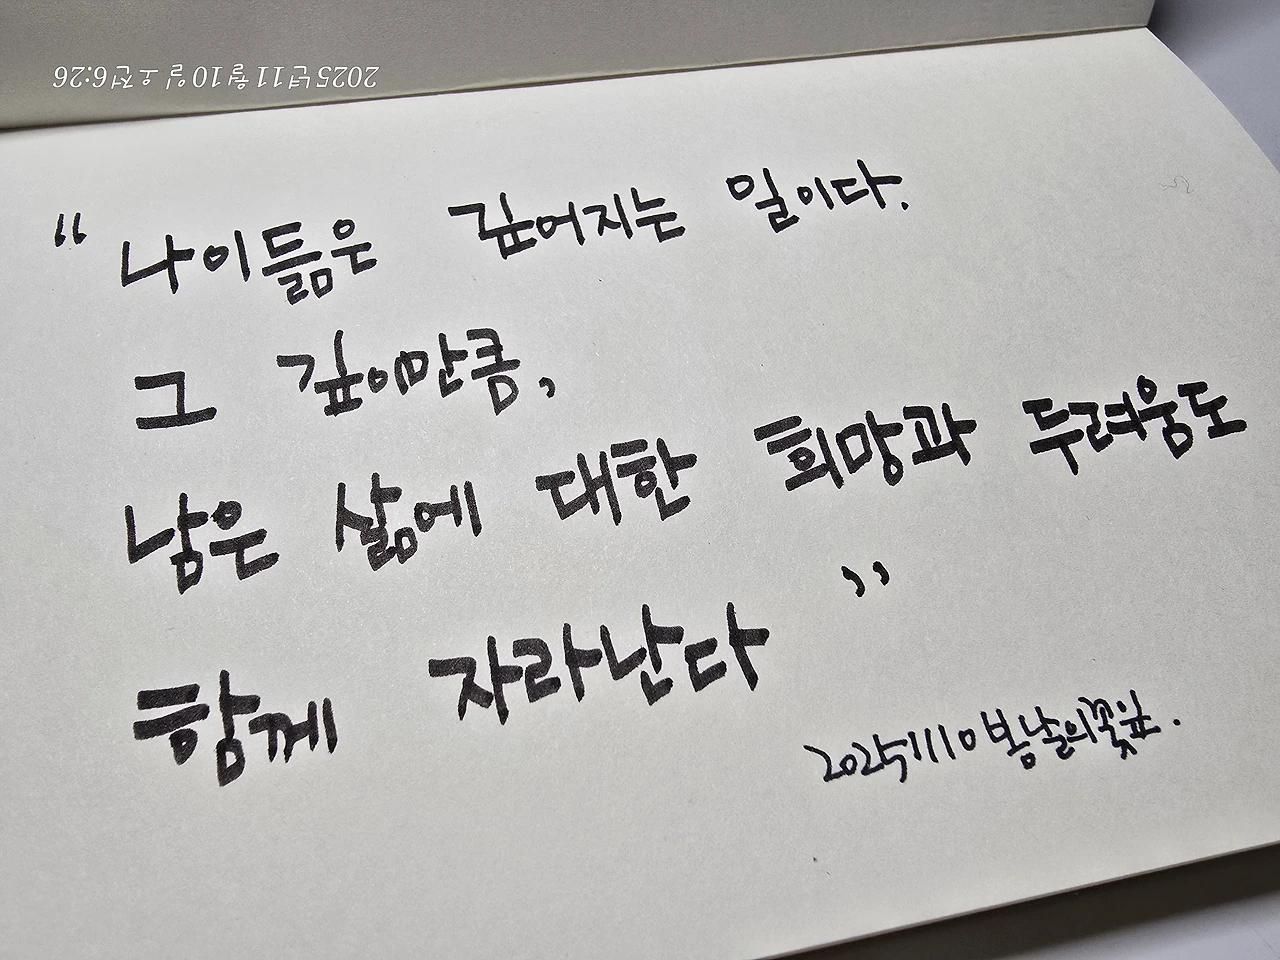 2025년 11월 10일 오전 6:26
“ 나이듦은 깊어지는 일이다.
그 깊이만큼,
남은 삶에 대한 희망과 두려움도
함께 자라난다 ”
20251110 봄날의꽃잎.